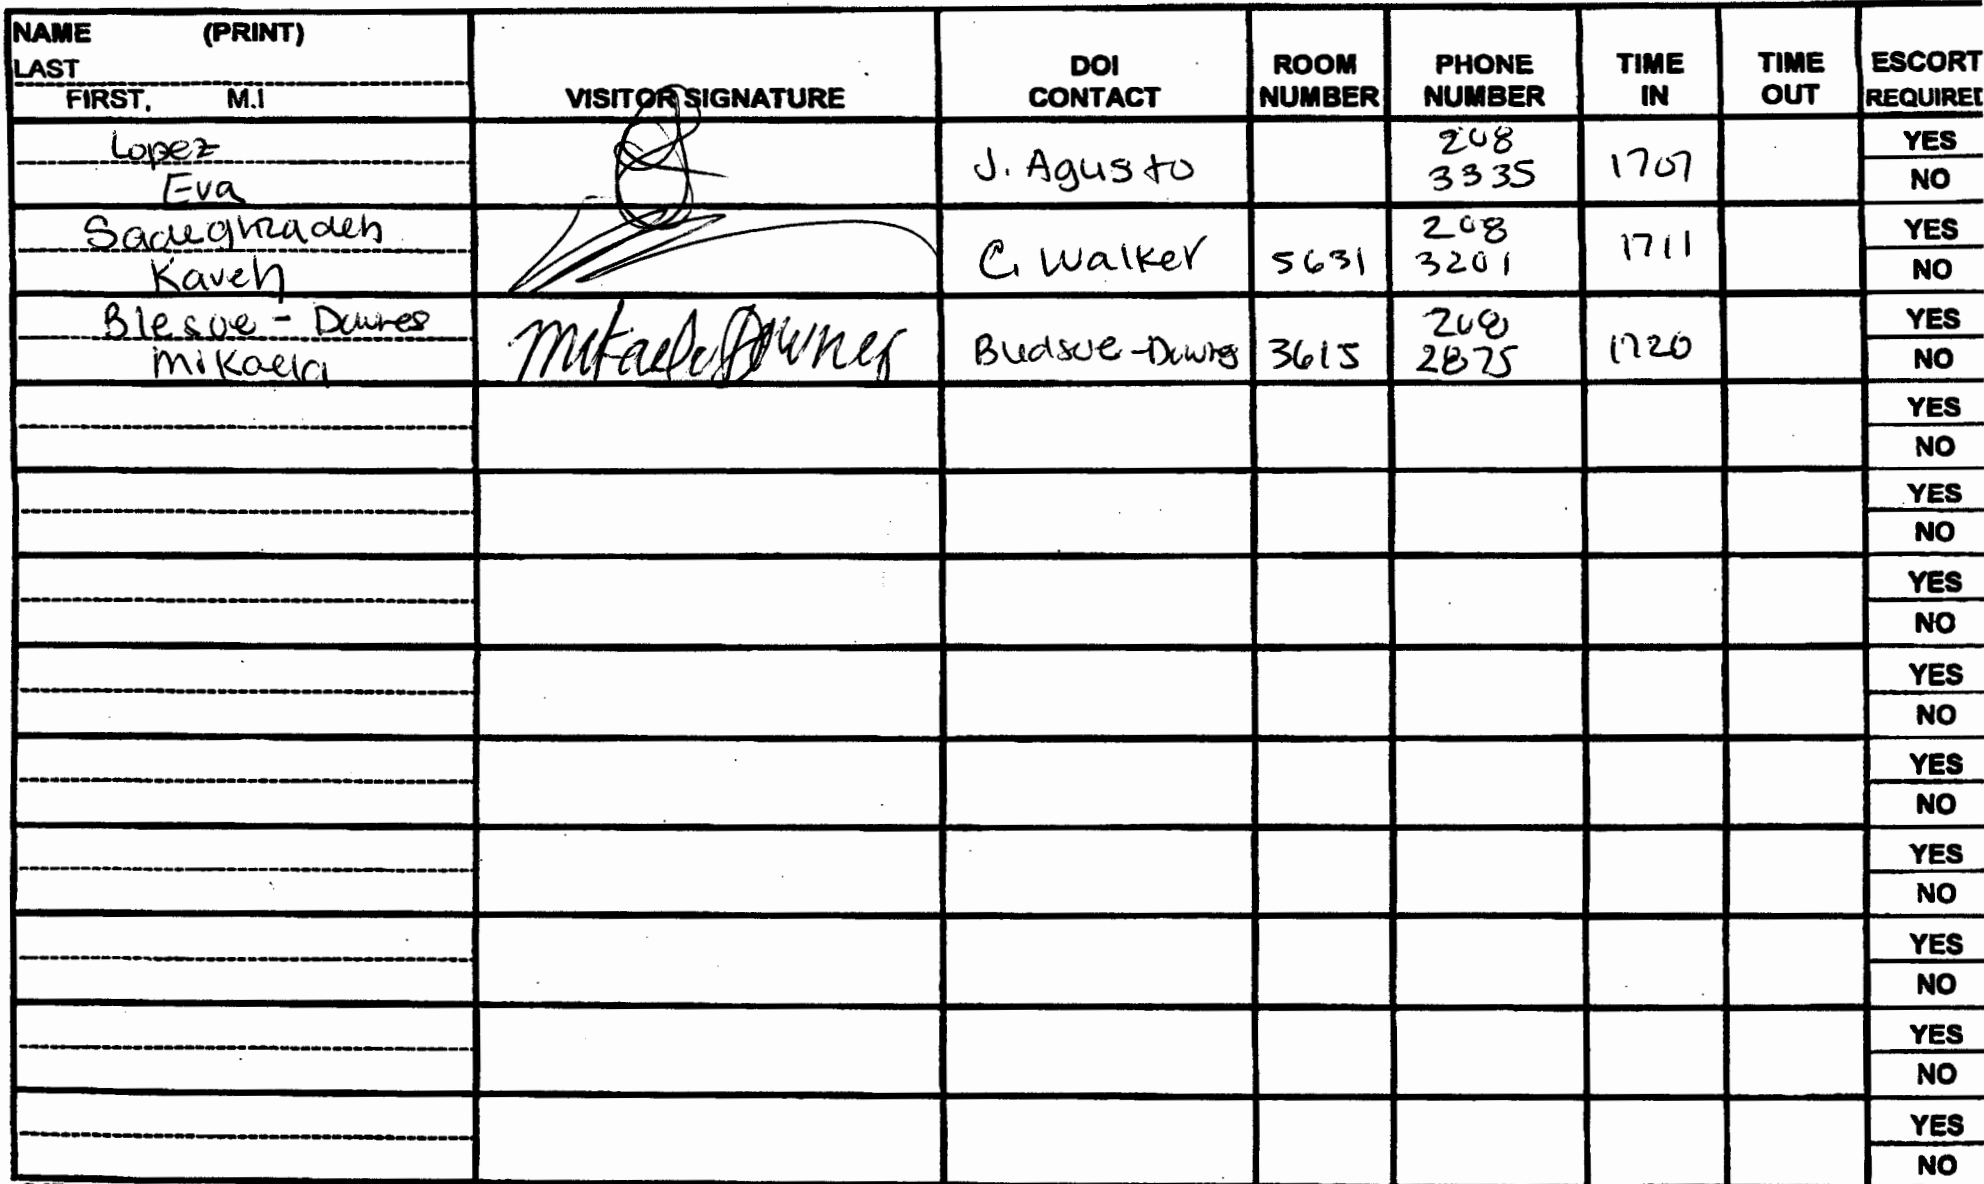 NAME (PRINT)
LAST
FIRST, M.I
VISITOR SIGNATURE
DOI
CONTACT
ROOM
NUMBER
PHONE
NUMBER
TIME
IN
TIME
OUT
ESCORT
REQUIRED
Lopez
Eva
J. Agusto
208
3335
1707
YES
NO
Sadeghzadeh
Kaveh
C. Walker
5631
208
3201
1711
YES
NO
Mikaela
Mikaela Downes
3615
208
2875
1720
YES
NO
YES
NO
YES
NO
YES
NO
YES
NO
YES
NO
YES
NO
YES
NO
YES
NO
YES
NO